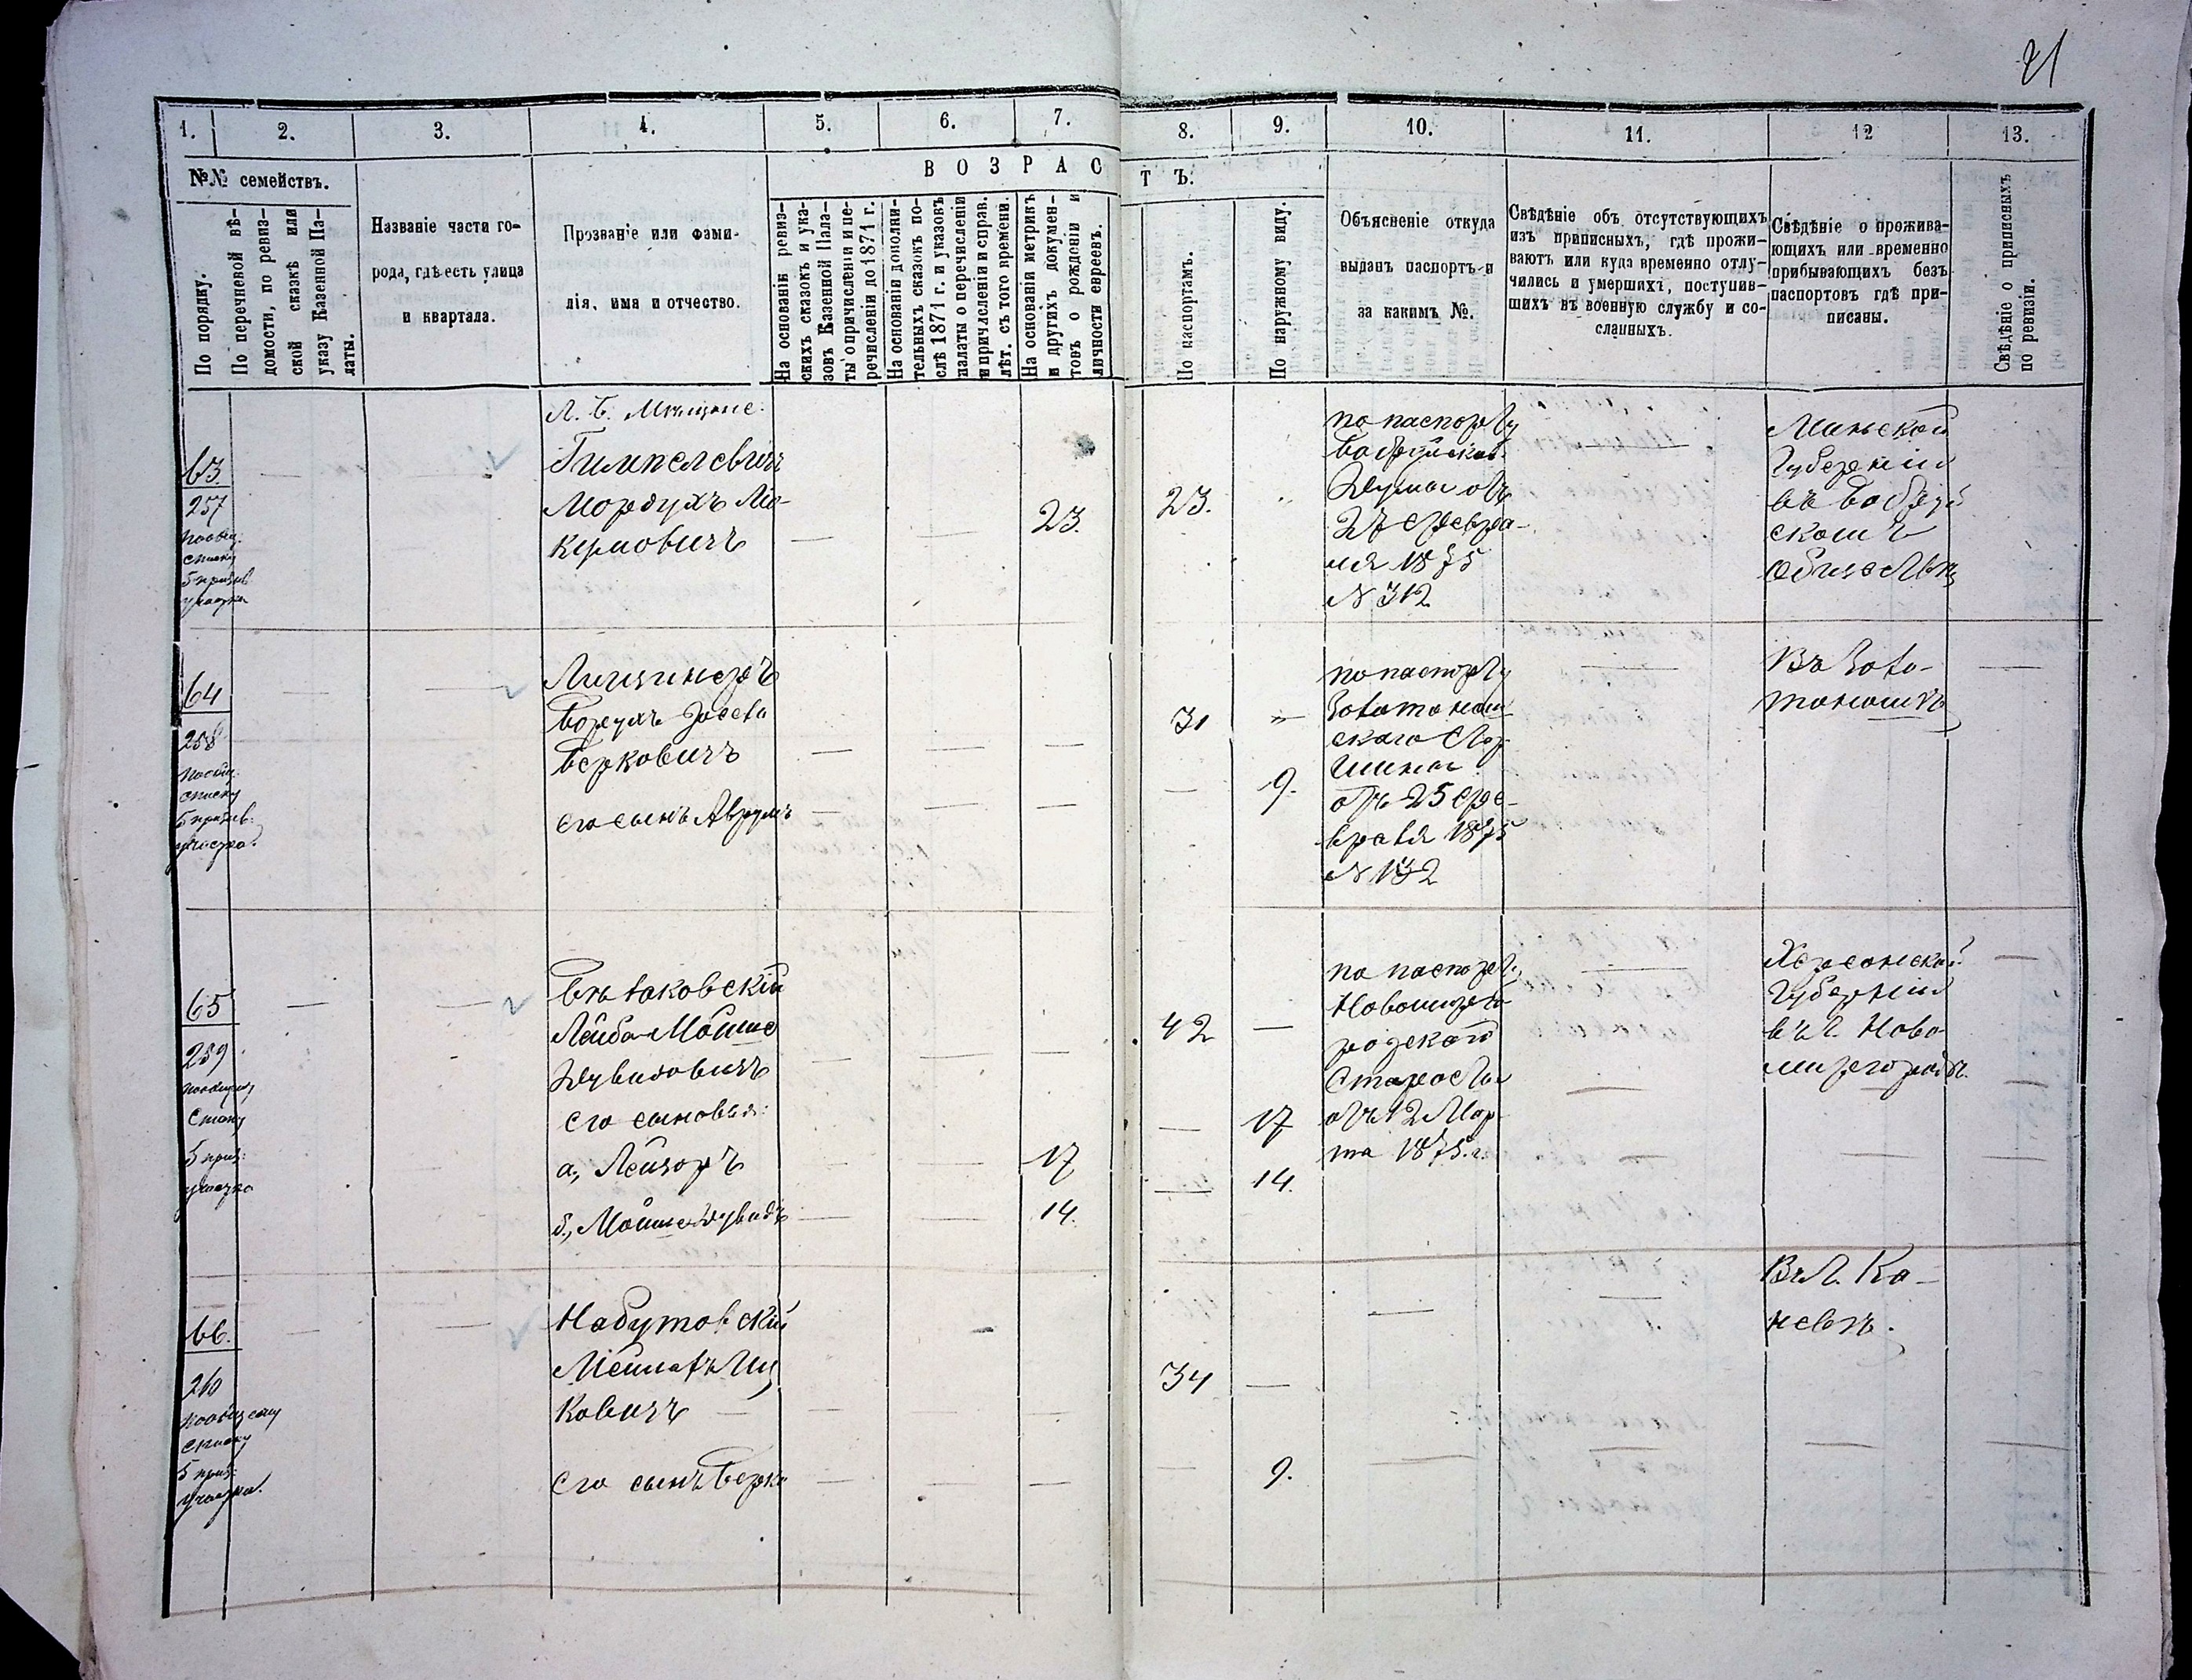 21
1.
2.
3.
4.
5.
6.
7.
8.
9.
10.
11.
12
13.
№№ семействъ.
ВОЗРАСТЪ.
По порядку.
По перечневой вѣ-
домости, по ревиз-
ской сказкѣ или
указу Казенной Па-
латы.
Названіе части го-
рода, гдѣ есть улица
и квартала.
Прозваніе или фами-
лія, имя и отчество.
На основаніи ревиз-
скихъ сказокъ и ука-
зовъ Казенной Пала-
ты о причисленіи и пе-
речисленіи до 1871 г.
На основаніи дополни-
тельныхъ сказокъ по-
слѣ 1871 г. и указовъ
палаты о перечисленіи
и причисленіи и справ.
лѣт. съ того времени.
На основаніи метрикъ
и другихъ докумен-
товъ о рожденіи и
личности евреевъ.
По паспортамъ.
По наружному виду.
Объясненіе откуда
выданъ паспортъ и
за какимъ №.
Свѣдѣніе объ отсутствующихъ
изъ приписныхъ, гдѣ прожи-
ваютъ или куда временно отлу-
чились и умершихъ, поступив-
шихъ въ военную службу и со-
сланныхъ.
Свѣдѣніе о прожива-
ющихъ или временно
прибывающихъ безъ
паспортовъ гдѣ при-
писаны.
Свѣдѣніе о приписныхъ
по ревизіи.
63
257
списку
участка
Мѣщане:
Гимпелевичъ
Мордухъ
23.
23.
по паспорту
Думы отъ
27 Февра-
ля 1875
N 312
Минской
Губерніи
въ Бобруй
скомъ
Обществѣ
64
258
списку
участка.
Лищинеръ
Борухъ
Берковичъ
его сынъ Аврумъ
31
9.
по паспорту
Золотонош
скаго
отъ 25 Фе-
враля 1875
Въ Золо-
тоношѣ
65
259
участка
Лейба Мойше
Дувидовичъ
его сыновья:
а, Лейзоръ
б, Мойше Дувидъ
17
14.
42
17
14.
по паспорту
Новомирго
родской
Старосты
отъ 12 Мар-
та 1875 г.
Херсонской
Губерніи
въ г. Ново
миргородѣ.
66.
260
по общему
списку
участка.
Набутовский
Иц
ковичъ
его сынъ Берко
34
9.
Въ г. Ка-
невѣ.